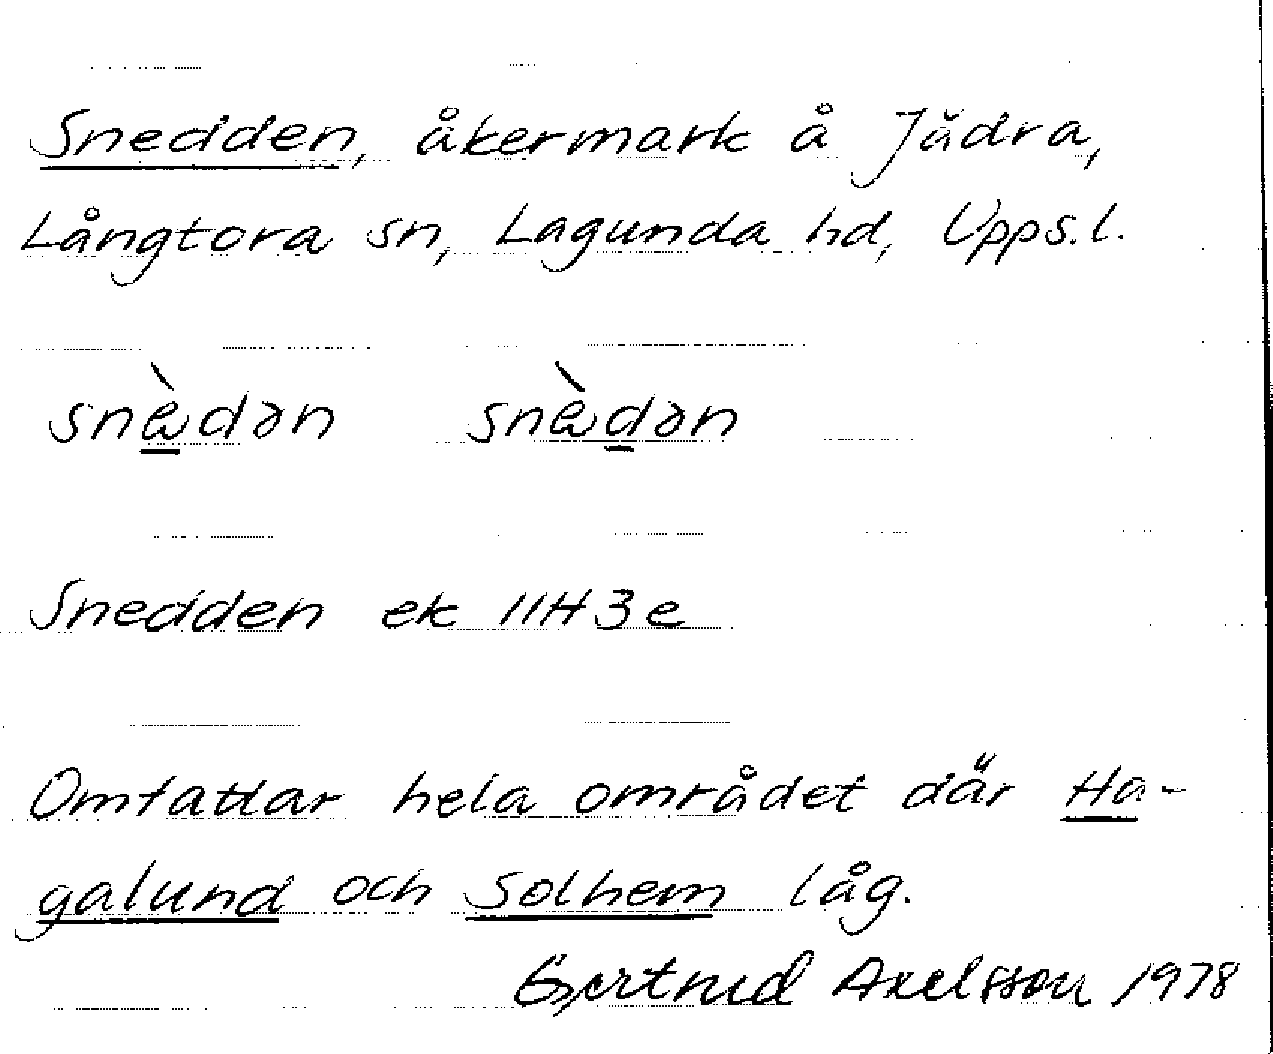 Snedden, åkermark å Jädra,
Långtora sn, Lagunda hd, Upps.l.
snæ̀dən snæ̀dən
Snedden ek 11H3e
Omfattar hela området där Ha-
galund och Solhem låg.
Gertrud Axelsson 1978